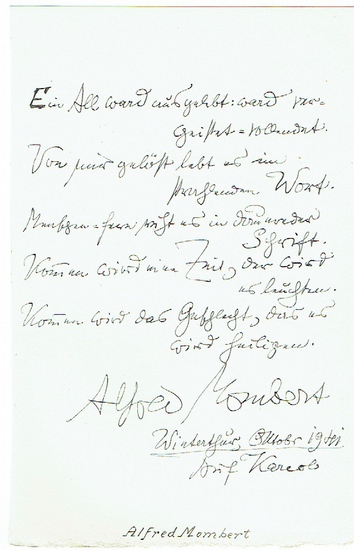 Ein All ward ausgelebt: ward ver=
geistet = vollendet.
Von mir gelöst lebt es im
strahlenden Wort.
Menschen=fern ruht es in dauernder
Schrift.
Kommen wird eine Zeit, der wird
es leuchten.
Kommen wird das Geschlecht, das es
wird heiligen.
Alfred Mombert
Winterthur, Oktober 1941
Alfred Mombert